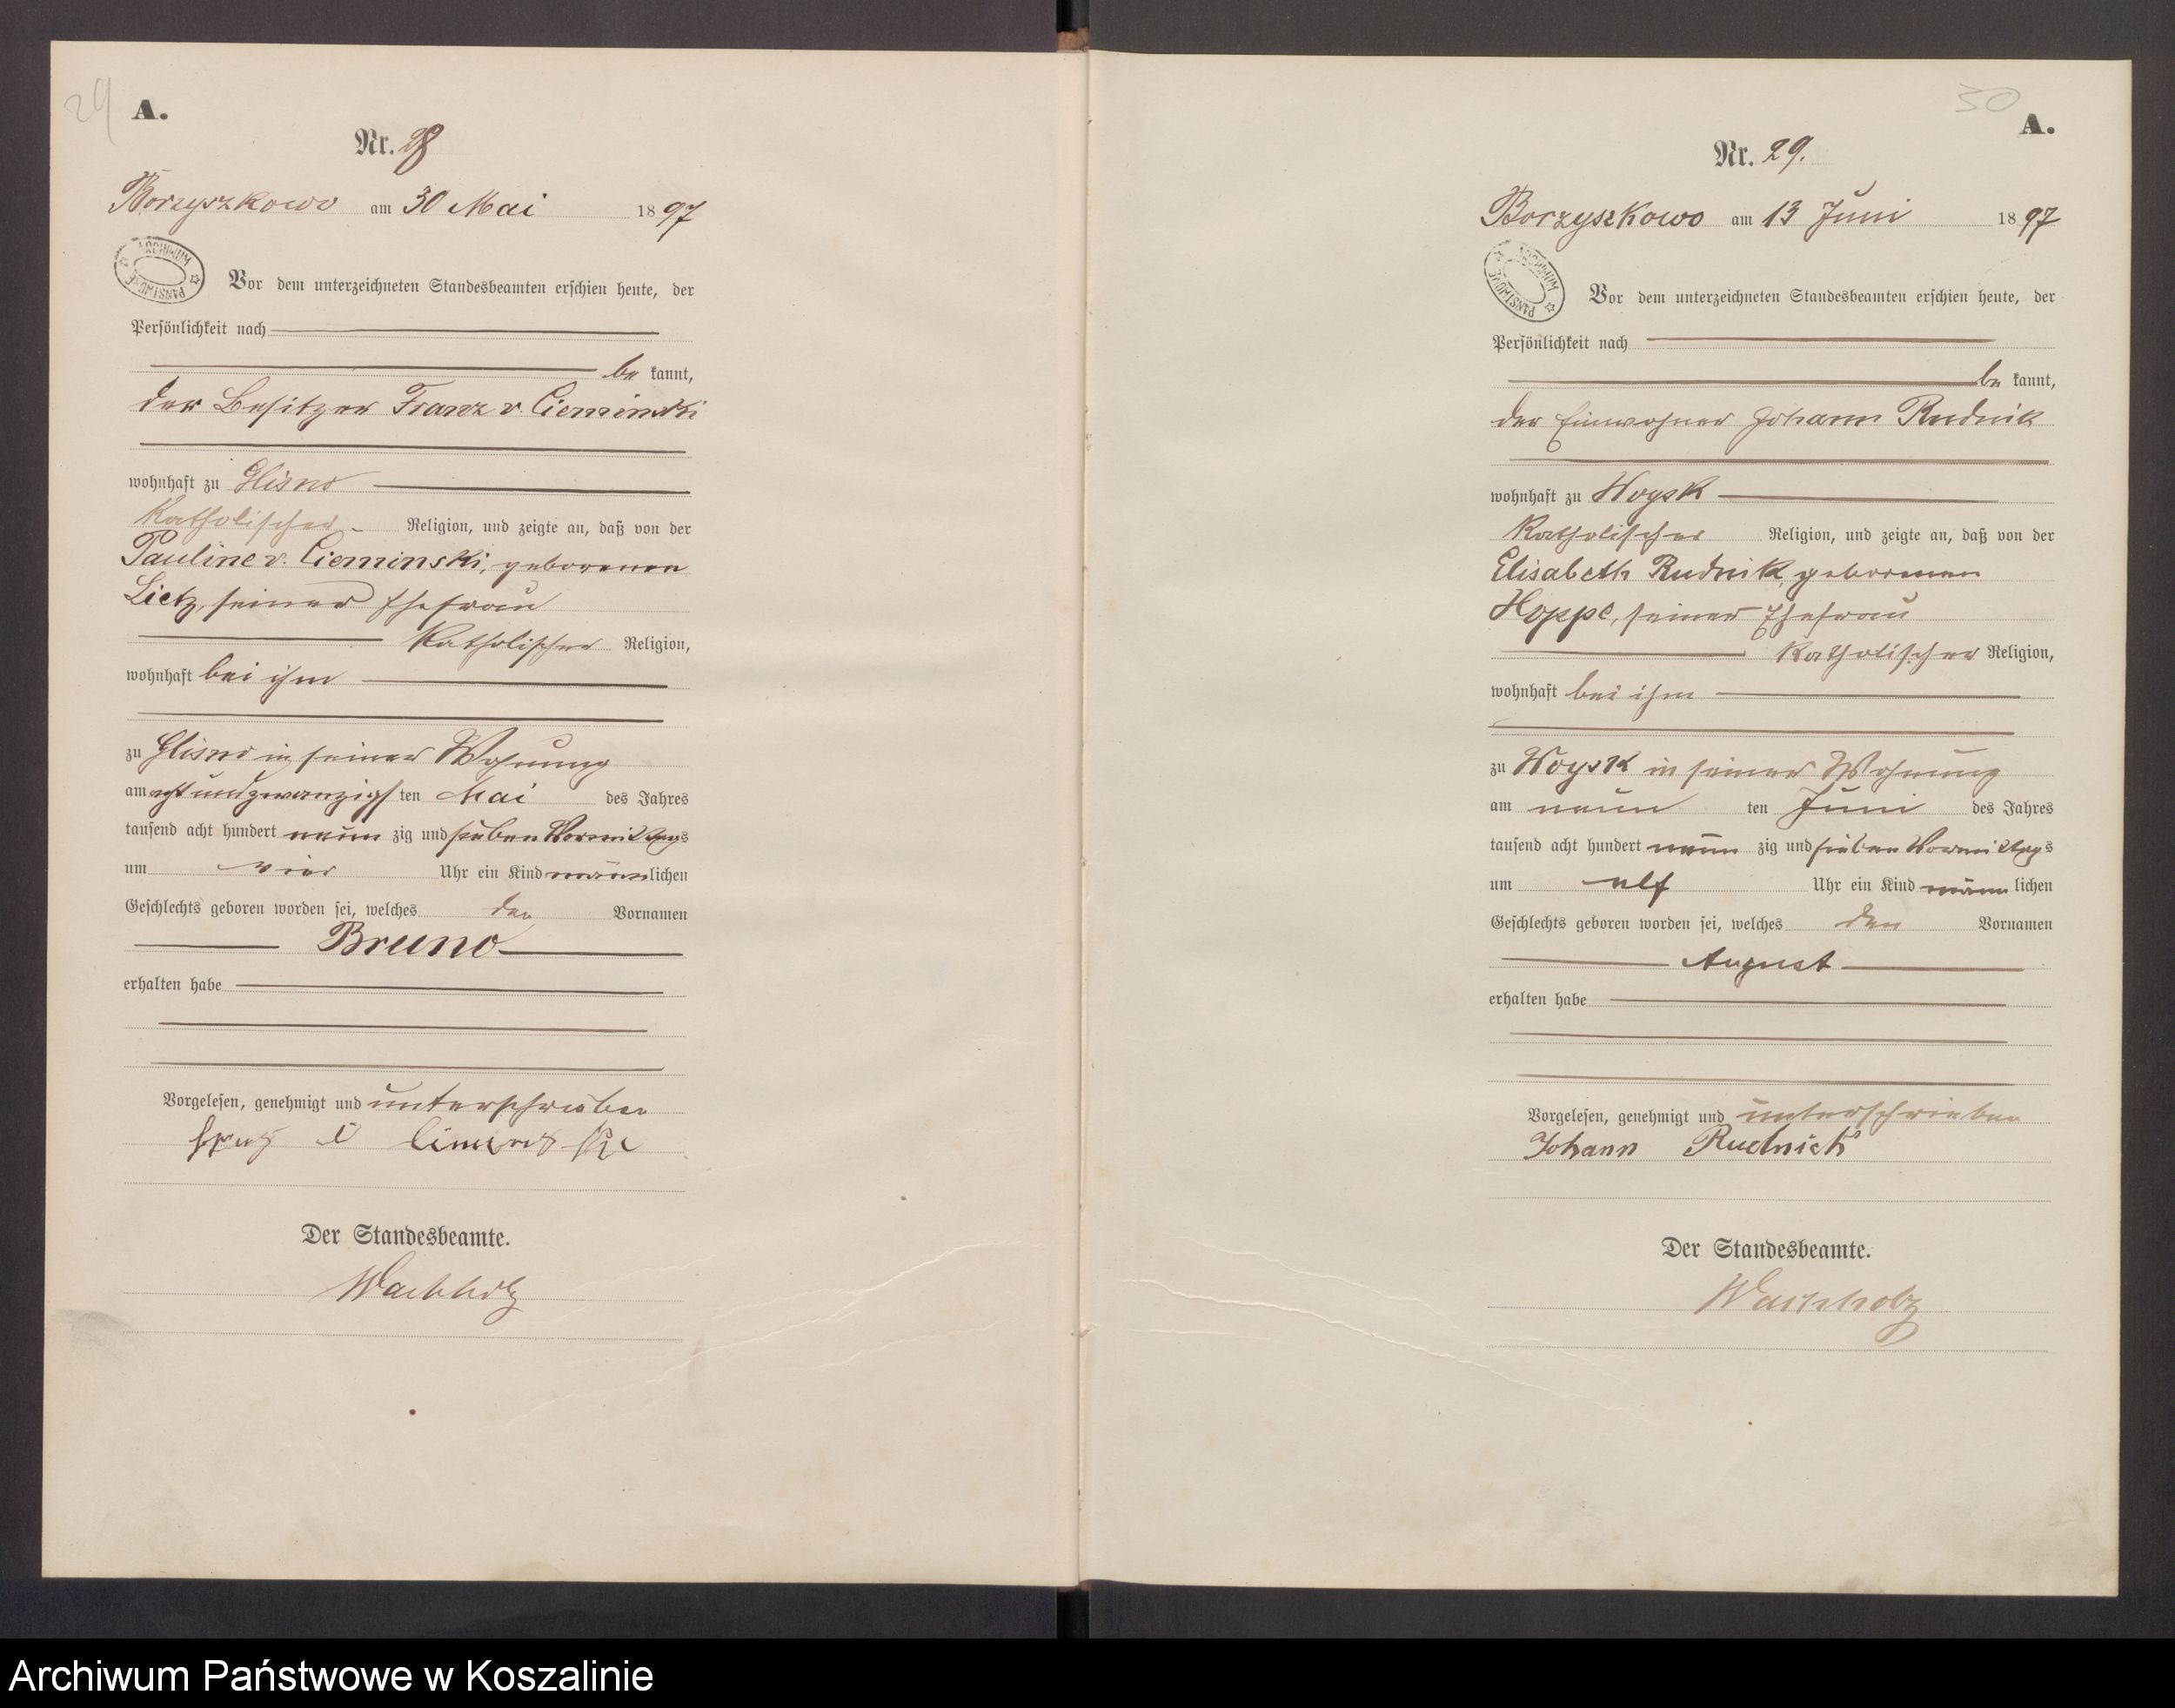 29
A.
Nr. 28
Borzyszkowo am 30 Mai 1897
ARCHIWUM PAŃSTWOWE
Vor dem unterzeichneten Standesbeamten erschien heute, der
Persönlichkeit nach
be kannt,
der Besitzer Franz v. Cieminski
wohnhaft zu Glisno
Katholischer Religion, und zeigte an, daß von der
Pauline v. Cieminski, geborenen
Lietz, seiner Ehefrau
Katholischer Religion,
wohnhaft bei ihm
zu Glisno in seiner Wohnung
am achtundzwanzigsten Mai des Jahres
tausend acht hundert neun zig und sieben Vormittags
um vier Uhr ein Kind männlichen
Geschlechts geboren worden sei, welches den Vornamen
Bruno
erhalten habe
Vorgelesen, genehmigt und unterschrieben
Der Standesbeamte.
Wachholz
30
A.
Nr. 29.
Borzyszkowo am 13 Juni 1897
ARCHIWUM PAŃSTWOWE
Vor dem unterzeichneten Standesbeamten erschien heute, der
Persönlichkeit nach
be kannt,
der Einwohner Johann Rudnik
wohnhaft zu Woysk
Katholischer Religion, und zeigte an, daß von der
Elisabeth Rudnik, geborenen
Hoppe, seiner Ehefrau
Katholischer Religion,
wohnhaft bei ihm
zu Woysk in seiner Wohnung
am neun ten Juni des Jahres
tausend acht hundert neun zig und sieben Vormittags
um elf Uhr ein Kind männlichen
Geschlechts geboren worden sei, welches den Vornamen
August
erhalten habe
Vorgelesen, genehmigt und unterschrieben
Johann Rudnick
Der Standesbeamte.
Wachholz
Archiwum Państwowe w Koszalinie